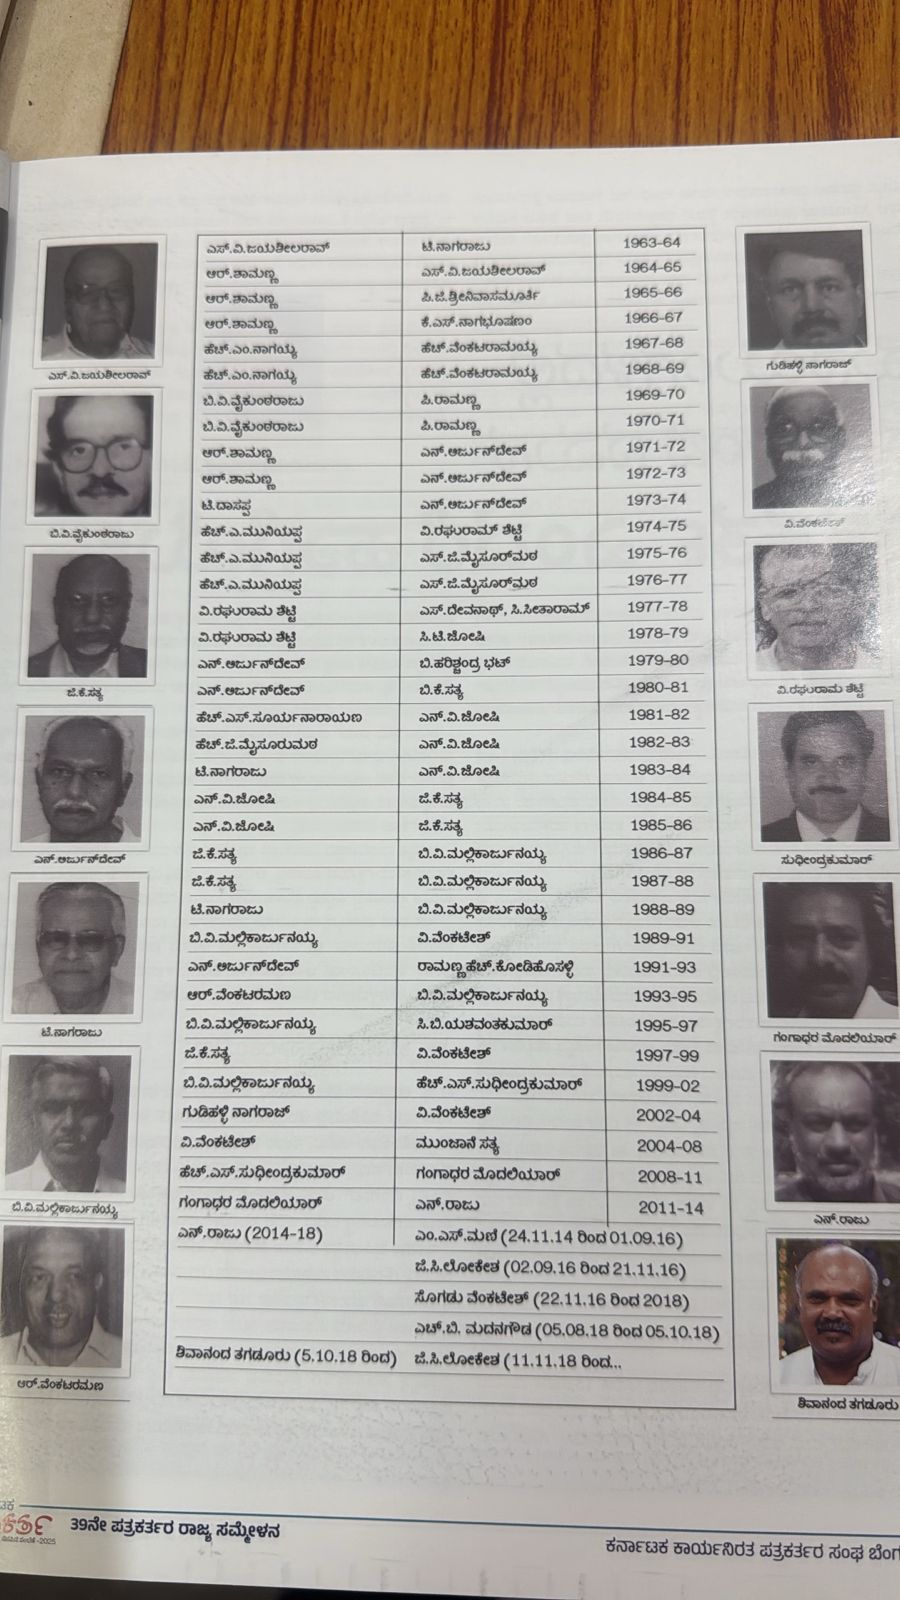 ಎಸ್.ವಿ.ಜಯಶೀಲರಾವ್ ಟಿ.ನಾಗರಾಜು 1963-64
ಆರ್.ಶಾಮಣ್ಣ ಎಸ್.ವಿ.ಜಯಶೀಲರಾವ್ 1964-65
ಆರ್.ಶಾಮಣ್ಣ ಪಿ.ಜಿ.ಶ್ರೀನಿವಾಸಮೂರ್ತಿ 1965-66
ಆರ್.ಶಾಮಣ್ಣ ಕೆ.ಎಸ್.ನಾಗಭೂಷಣಂ 1966-67
ಹೆಚ್.ಎಂ.ನಾಗಯ್ಯ ಹೆಚ್.ವೆಂಕಟರಾಮಯ್ಯ 1967-68
ಹೆಚ್.ಎಂ.ನಾಗಯ್ಯ ಹೆಚ್.ವೆಂಕಟರಾಮಯ್ಯ 1968-69
ಬಿ.ವಿ.ವೈಕುಂಠರಾಜು ಪಿ.ರಾಮಣ್ಣ 1969-70
ಬಿ.ವಿ.ವೈಕುಂಠರಾಜು ಪಿ.ರಾಮಣ್ಣ 1970-71
ಆರ್.ಶಾಮಣ್ಣ ಎನ್.ಅರ್ಜುನ್‌ದೇವ್ 1971-72
ಆರ್.ಶಾಮಣ್ಣ ಎನ್.ಅರ್ಜುನ್‌ದೇವ್ 1972-73
ಟಿ.ದಾಸಪ್ಪ ಎನ್.ಅರ್ಜುನ್‌ದೇವ್ 1973-74
ಹೆಚ್.ಎ.ಮುನಿಯಪ್ಪ ವಿ.ರಘುರಾಮ್ ಶೆಟ್ಟಿ 1974-75
ಹೆಚ್.ಎ.ಮುನಿಯಪ್ಪ ಎಸ್.ಜಿ.ಮೈಸೂರ್‌ಮಠ 1975-76
ಹೆಚ್.ಎ.ಮುನಿಯಪ್ಪ ಎಸ್.ಜಿ.ಮೈಸೂರ್‌ಮಠ 1976-77
ವಿ.ರಘುರಾಮ ಶೆಟ್ಟಿ ಎಸ್.ದೇವನಾಥ್, ಸಿ.ಸೀತಾರಾಮ್ 1977-78
ವಿ.ರಘುರಾಮ ಶೆಟ್ಟಿ ಸಿ.ಟಿ.ಜೋಷಿ 1978-79
ಎನ್.ಅರ್ಜುನ್‌ದೇವ್ ಬಿ.ಹರಿಶ್ಚಂದ್ರ ಭಟ್ 1979-80
ಎನ್.ಅರ್ಜುನ್‌ದೇವ್ ಬಿ.ಕೆ.ಸತ್ಯ 1980-81
ಹೆಚ್.ಎಸ್.ಸೂರ್ಯನಾರಾಯಣ ಎನ್.ವಿ.ಜೋಷಿ 1981-82
ಹೆಚ್.ಜಿ.ಮೈಸೂರುಮಠ ಎನ್.ವಿ.ಜೋಷಿ 1982-83
ಟಿ.ನಾಗರಾಜು ಎನ್.ವಿ.ಜೋಷಿ 1983-84
ಎನ್.ವಿ.ಜೋಷಿ ಜಿ.ಕೆ.ಸತ್ಯ 1984-85
ಎನ್.ವಿ.ಜೋಷಿ ಜಿ.ಕೆ.ಸತ್ಯ 1985-86
ಜಿ.ಕೆ.ಸತ್ಯ ಬಿ.ವಿ.ಮಲ್ಲಿಕಾರ್ಜುನಯ್ಯ 1986-87
ಜಿ.ಕೆ.ಸತ್ಯ ಬಿ.ವಿ.ಮಲ್ಲಿಕಾರ್ಜುನಯ್ಯ 1987-88
ಟಿ.ನಾಗರಾಜು ಬಿ.ವಿ.ಮಲ್ಲಿಕಾರ್ಜುನಯ್ಯ 1988-89
ಬಿ.ವಿ.ಮಲ್ಲಿಕಾರ್ಜುನಯ್ಯ ವಿ.ವೆಂಕಟೇಶ್ 1989-91
ಎನ್.ಅರ್ಜುನ್‌ದೇವ್ ರಾಮಣ್ಣ ಹೆಚ್.ಕೋಡಿಹೊಸಳ್ಳಿ 1991-93
ಆರ್.ವೆಂಕಟರಮಣ ಬಿ.ವಿ.ಮಲ್ಲಿಕಾರ್ಜುನಯ್ಯ 1993-95
ಬಿ.ವಿ.ಮಲ್ಲಿಕಾರ್ಜುನಯ್ಯ ಸಿ.ಬಿ.ಯಶವಂತಕುಮಾರ್ 1995-97
ಜಿ.ಕೆ.ಸತ್ಯ ವಿ.ವೆಂಕಟೇಶ್ 1997-99
ಬಿ.ವಿ.ಮಲ್ಲಿಕಾರ್ಜುನಯ್ಯ ಹೆಚ್.ಎಸ್.ಸುಧೀಂದ್ರಕುಮಾರ್ 1999-02
ಗುಡಿಹಳ್ಳಿ ನಾಗರಾಜ್ ವಿ.ವೆಂಕಟೇಶ್ 2002-04
ವಿ.ವೆಂಕಟೇಶ್ ಮುಂಜಾನೆ ಸತ್ಯ 2004-08
ಹೆಚ್.ಎಸ್.ಸುಧೀಂದ್ರಕುಮಾರ್ ಗಂಗಾಧರ ಮೊದಲಿಯಾರ್ 2008-11
ಗಂಗಾಧರ ಮೊದಲಿಯಾರ್ ಎನ್.ರಾಜು 2011-14
ಎನ್.ರಾಜು (2014-18) ಎಂ.ಎಸ್.ಮಣಿ (24.11.14 ರಿಂದ 01.09.16)
ಜಿ.ಸಿ.ಲೋಕೇಶ (02.09.16 ರಿಂದ 21.11.16)
ಸೊಗಡು ವೆಂಕಟೇಶ್ (22.11.16 ರಿಂದ 2018)
ಎಚ್.ಬಿ. ಮದನಗೌಡ (05.08.18 ರಿಂದ 05.10.18)
ಶಿವಾನಂದ ತಗಡೂರು (5.10.18 ರಿಂದ) ಜಿ.ಸಿ.ಲೋಕೇಶ (11.11.18 ರಿಂದ...
ಎಸ್.ವಿ.ಜಯಶೀಲರಾವ್
ಬಿ.ವಿ.ವೈಕುಂಠರಾಜು
ಜಿ.ಕೆ.ಸತ್ಯ
ಎನ್.ಅರ್ಜುನ್‌ದೇವ್
ಟಿ.ನಾಗರಾಜು
ಬಿ.ವಿ.ಮಲ್ಲಿಕಾರ್ಜುನಯ್ಯ
ಆರ್.ವೆಂಕಟರಮಣ
ಗುಡಿಹಳ್ಳಿ ನಾಗರಾಜ್
ವಿ.ವೆಂಕಟೇಶ್
ವಿ.ರಘುರಾಮ ಶೆಟ್ಟಿ
ಸುಧೀಂದ್ರಕುಮಾರ್
ಗಂಗಾಧರ ಮೊದಲಿಯಾರ್
ಎನ್.ರಾಜು
ಶಿವಾನಂದ ತಗಡೂರು
39ನೇ ಪತ್ರಕರ್ತರ ರಾಜ್ಯ ಸಮ್ಮೇಳನ
ಕರ್ನಾಟಕ ಕಾರ್ಯನಿರತ ಪತ್ರಕರ್ತರ ಸಂಘ ಬೆಂಗ